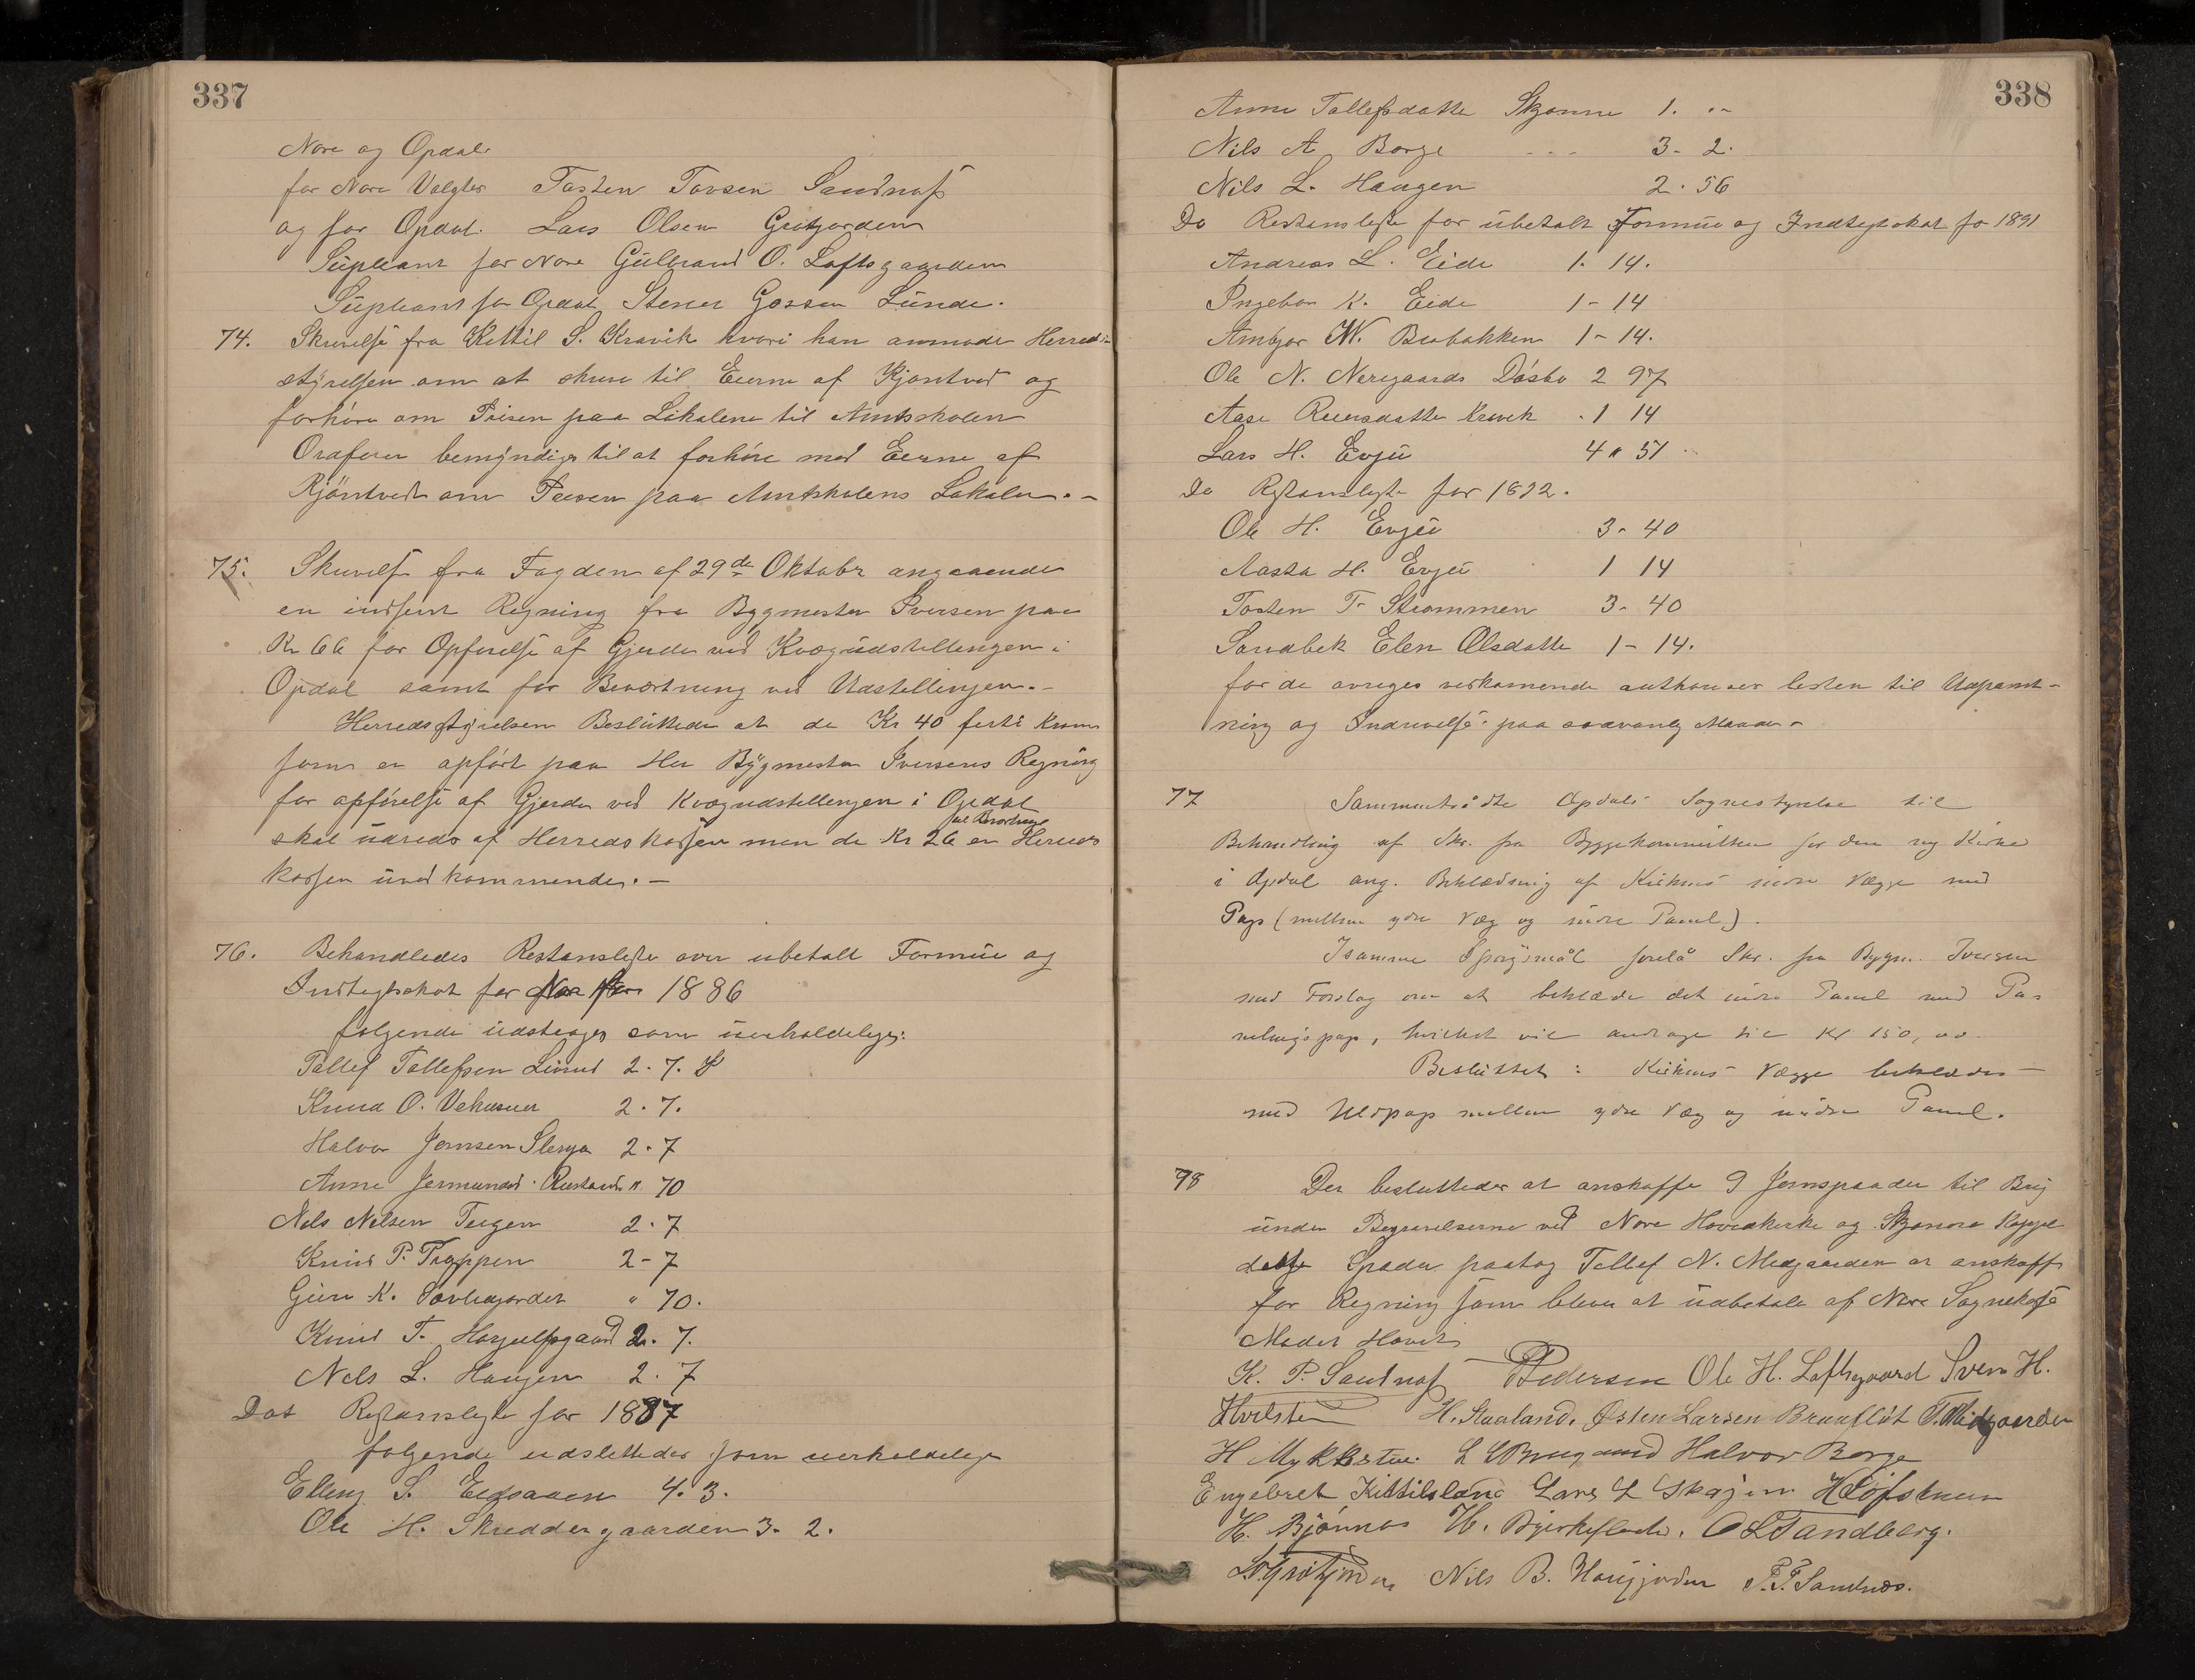 337
Nore og Opdal.
for Nore Valgtes Tosten Torsen Sandnæs
og for Opdal. Lars Olsen Grøtjorden
Supleant for Nore Gulbrand O. Loftsgaarden
Supleant for Opdal Stener Gossen Lunde.
74. Skrivelse fra Kittil S. Kravik hvori han anmoder Herreds-
styrelsen om at skrive til Eierne af Kjøntved og
forhøre om Prisen paa Lokalene til Amtskolen
Ordfører bemyndiges til at forhøre med Eierne af
Kjöntvedt om Prisen paa Amtskolens Lokaler. -
75. Skrivelse fra Fogden af 29de Oktobr angaaende
en indsent Regning fra Bygmester Iversen paa
Kr 66 for Opførelse af Gjerde ved Kvægudstellingen i
Opdal samt for Beværtning ved Udstellingen. -
Herredsstyrelsen Besluttede at de Kr 40 firti Kroner
som er opført paa Her Bygmester Iversens Regning
for opförelse af Gjerde ved Kvægudstellingen i Opdal
skal udredes af Herredskassen men de Kr 26 til Beværtning er Herreds
kassen uvedkommende. -
76. Behandledes Restansliste over ubetalt Formue og
Indtegtskat for 1886
følgende udstroges som uerholdelige:
Tollef Tollefsen Lunud 2. 7.
Knud O. Vehusuer 2. 7.
Halvor Jornsen Slenga 2. 7
Anne Jermundsd. Rustand " 70
Nels Nelsen Teigen 2. 7
Knud P. Trappen 2 - 7
Guro K. Søvligjordet " 70.
Knud T. Horjulfsgaard 2. 7.
Nels L. Haugen 2. 7
Dot Restansliste for 1887
følgende udslettedes som uerholdelige
Elling S. Eidsaaen 4. 3.
Ole H. Skreddergaarden 3. 2.
338
Anne Tollefsdatter Skjønne 1. "-
Nils A Borge - - - 3 - 2.
Nils L. Haugen 2. 56
Do Restansliste for ubetalt Formue og Indtegtskat for 1891
Andreas L. Eide 1. 14.
Ingebor K. Eide 1 - 14
Ambjor W. Brobakken 1 - 14.
Ole N. Nergaards Døsbo 2 97
Aase Reiersdatter Kravik . 1 14
Lars H. Evju 4 " 51
Do Restansliste for 1892.
Ole H. Evju 3 - 40
Aasta H. Evju 1 14
Tosten T. Strømmen 3 - 40
Sandbek Elen Olsdatter 1 - 14.
for de øvriges vedkomende authoriser listen til Udpant-
ning og Inddrivelse paa sedvanlig Maade -
77 Sammentrådte Opdals Sognestyrelse til
Behandling af Skr. fra Byggekommitteen for den ny Kirke
i Opdal ang. Beklædning af Kirkens indre Vægge med
Pap (mellem ydre Væg og indre Panel).
I samme Spørgsmål forelå Skr. fra Bygm. Iversen
med Forslag om at beklæde det indre Panel med Pa-
nelingspap, hvilket vil andrage til Kr 150,00.
Besluttet: Kirkens Vægge beklædes
med Uldpap mellem ydre Væg og indre Panel.
78 Der besluttedes at anskaffe 9 Jernspaader til Brug
under Begravelserne ved Nore Hovedkirke og Skjønne Kappel
dette Spader paatog Tollef N. Medgaarden at anskaffe
for Regning som bliver at udbetale af Nore Sognekasse
Mødet Hævet
K. P. Sandnæs Pedersen Ole H. Loftsgaard Sven H.
Hvilsten H. Staaland. Østen Larsen Braaflåt T. Midgaarden
H Mykkstue. L L Brugaard Halvor Borge
Engebret Kittilsland Lars L Skajem H Løfstuen
H. Bjønnes H. Bjerkeflaata. O L Tandberg.
L O Grøtjorden Nils B. Haugjorden T. T. Sandnæs.